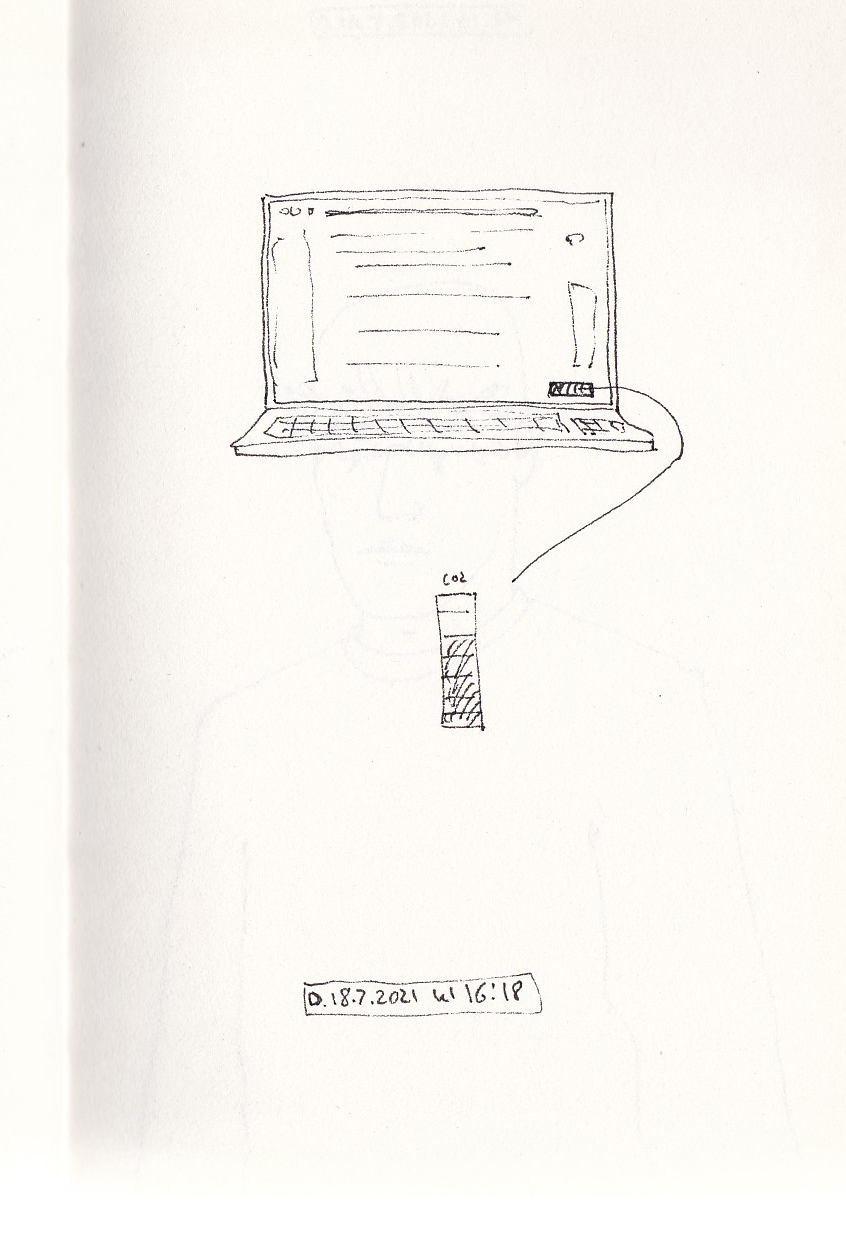 CO2
D. 18.7.2021 kl 16:18